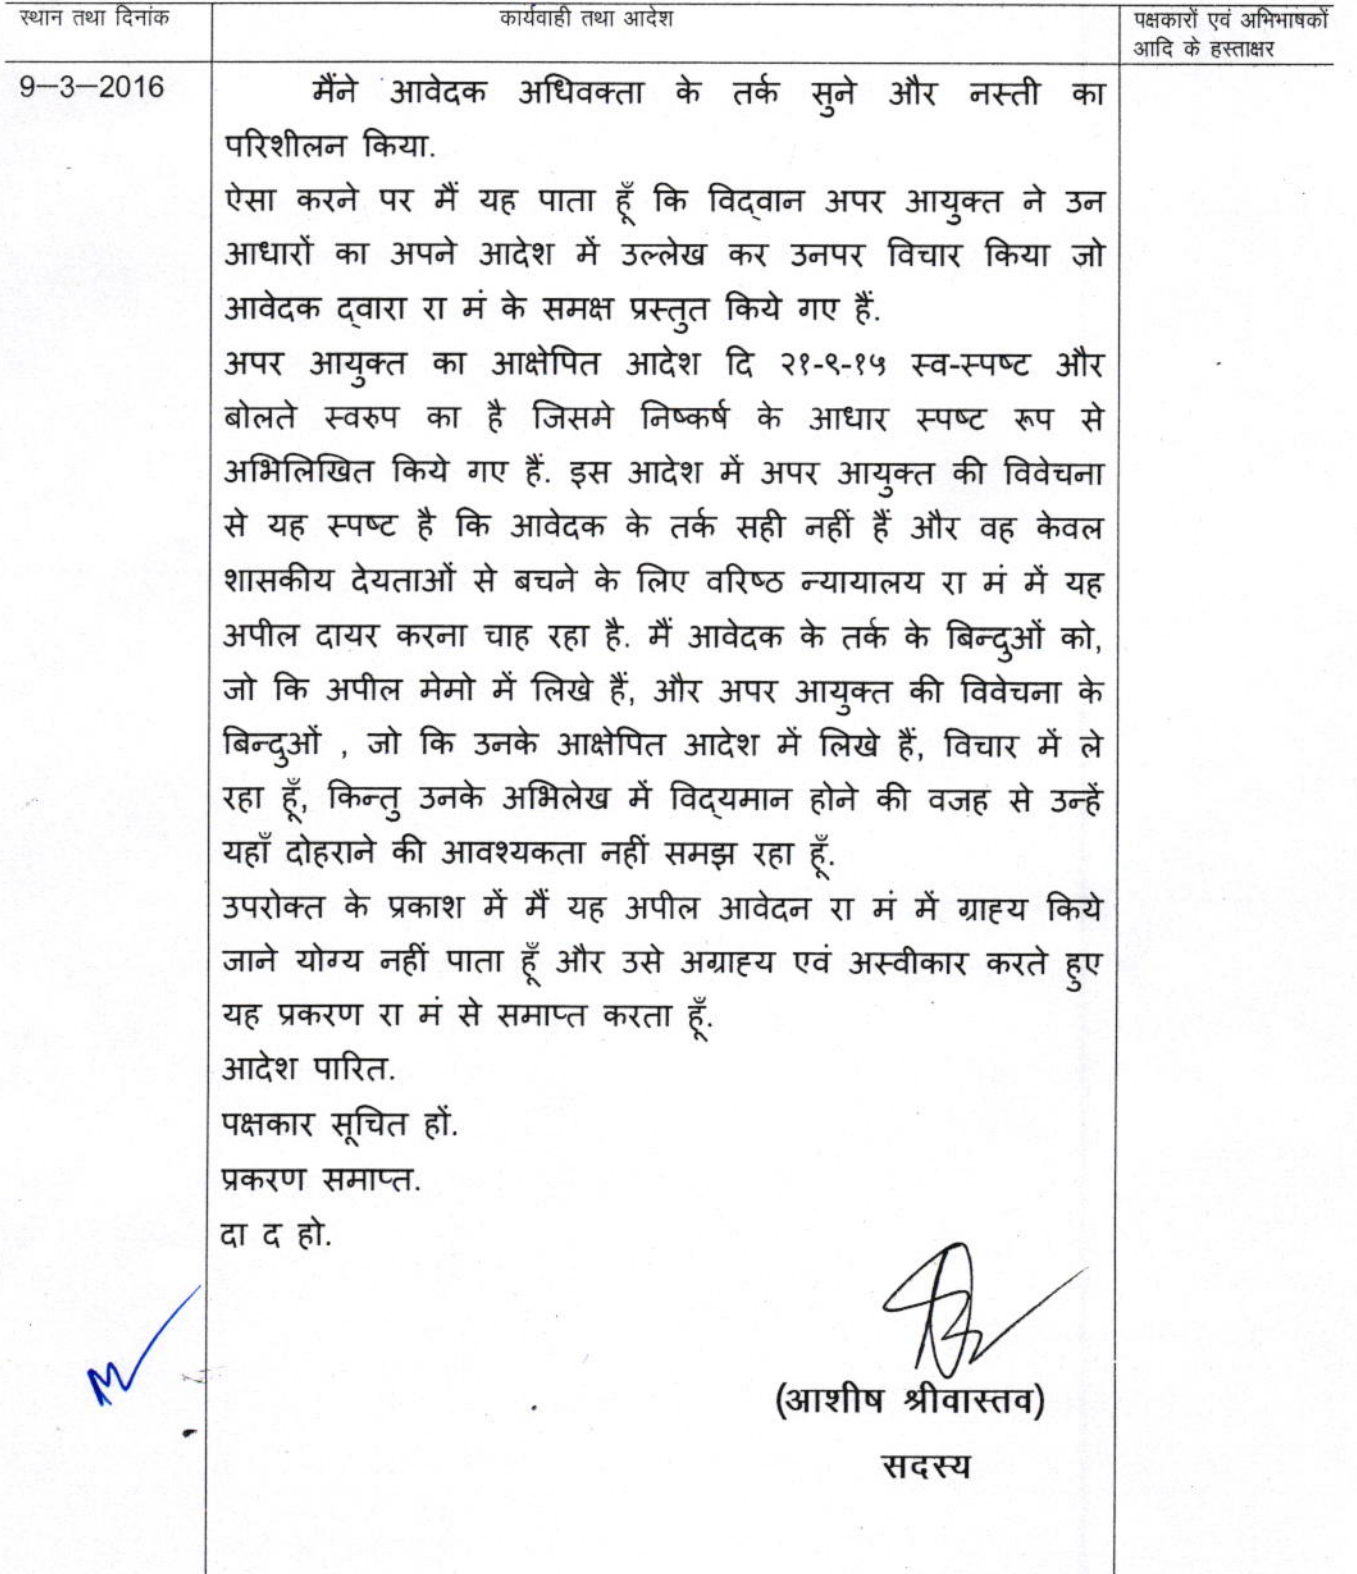 स्थान तथा दिनांक
कार्यवाही तथा आदेश
पक्षकारों एवं अभिभाषकों
आदि के हस्ताक्षर
9–3–2016
मैंने आवेदक अधिवक्ता के तर्क सुने और नस्ती का
परिशीलन किया.
ऐसा करने पर मैं यह पाता हूँ कि विद्वान अपर आयुक्त ने उन
आधारों का अपने आदेश में उल्लेख कर उनपर विचार किया जो
आवेदक द्वारा रा मं के समक्ष प्रस्तुत किये गए हैं.
अपर आयुक्त का आक्षेपित आदेश दि २१-९-१५ स्व-स्पष्ट और
बोलते स्वरुप का है जिसमे निष्कर्ष के आधार स्पष्ट रूप से
अभिलिखित किये गए हैं. इस आदेश में अपर आयुक्त की विवेचना
से यह स्पष्ट है कि आवेदक के तर्क सही नहीं हैं और वह केवल
शासकीय देयताओं से बचने के लिए वरिष्ठ न्यायालय रा मं में यह
अपील दायर करना चाह रहा है. मैं आवेदक के तर्क के बिन्दुओं को,
जो कि अपील मेमो में लिखे हैं, और अपर आयुक्त की विवेचना के
बिन्दुओं , जो कि उनके आक्षेपित आदेश में लिखे हैं, विचार में ले
रहा हूँ, किन्तु उनके अभिलेख में विद्यमान होने की वजह से उन्हें
यहाँ दोहराने की आवश्यकता नहीं समझ रहा हूँ.
उपरोक्त के प्रकाश में मैं यह अपील आवेदन रा मं में ग्राह्य किये
जाने योग्य नहीं पाता हूँ और उसे अग्राह्य एवं अस्वीकार करते हुए
यह प्रकरण रा मं से समाप्त करता हूँ.
आदेश पारित.
पक्षकार सूचित हों.
प्रकरण समाप्त.
दा द हो.
(आशीष श्रीवास्तव)
सदस्य